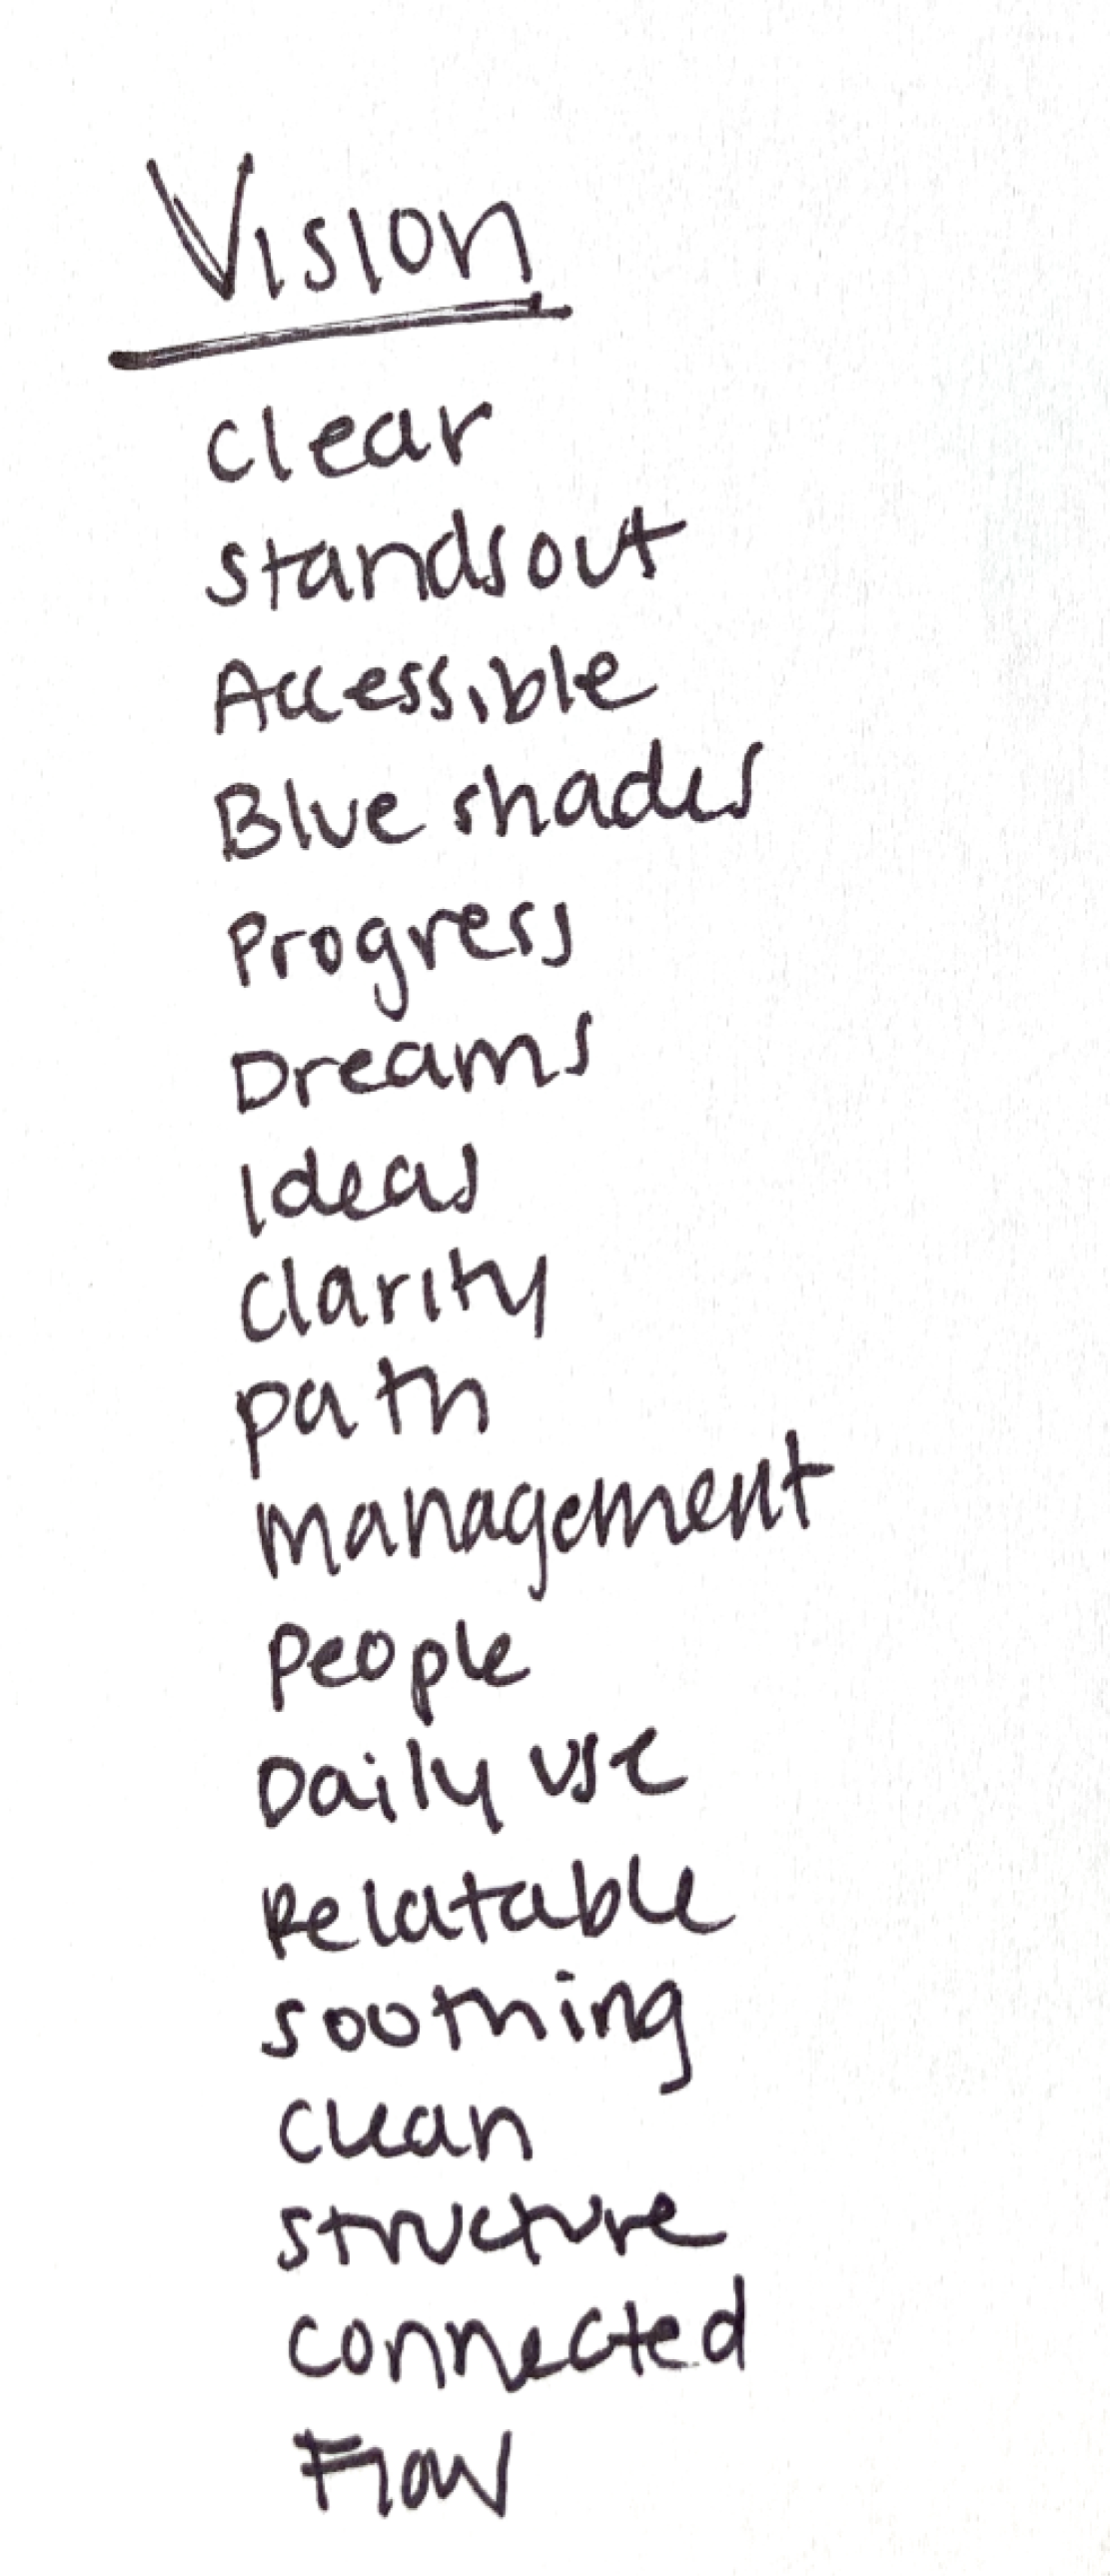 Vision
clear
standsout
Accessible
Blue shades
Progress
Dreams
Ideas
clarity
path
management
people
Daily use
Relatable
soothing
clean
structure
connected
Flow